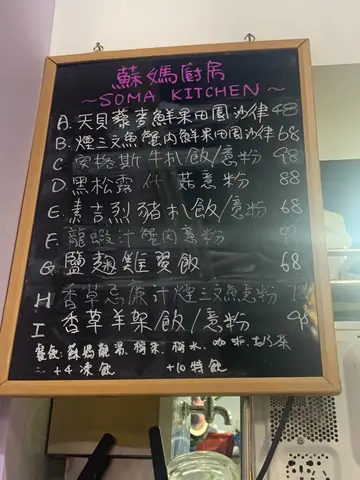 蘇媽廚房
~SOMA KITCHEN~
A. 天貝藜麥鮮果田園沙律 48
B. 煙三文魚蟹肉鮮果田園沙律 68
C 安格斯牛扒飯/意粉 98
D. 黑松露什菇意粉 88
E. 素吉烈豬扒飯/意粉 68
F. 龍蝦汁蟹肉意粉
G. 鹽麴雞翼飯 68
H 香草忌廉汁煙三文魚意粉
I 香草羊架飯/意粉
餐飲: 蘇媽靚湯、梅茶、梅水、咖啡
+4凍飲 +10特飲